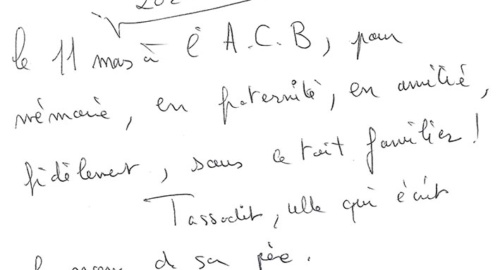 le 11 mars à l'A.C.B, pour
mémoire, en fraternité, en amitié,
fidèlement, sous ce toit familier !
Tassadit, celle qui écrit
de son père.